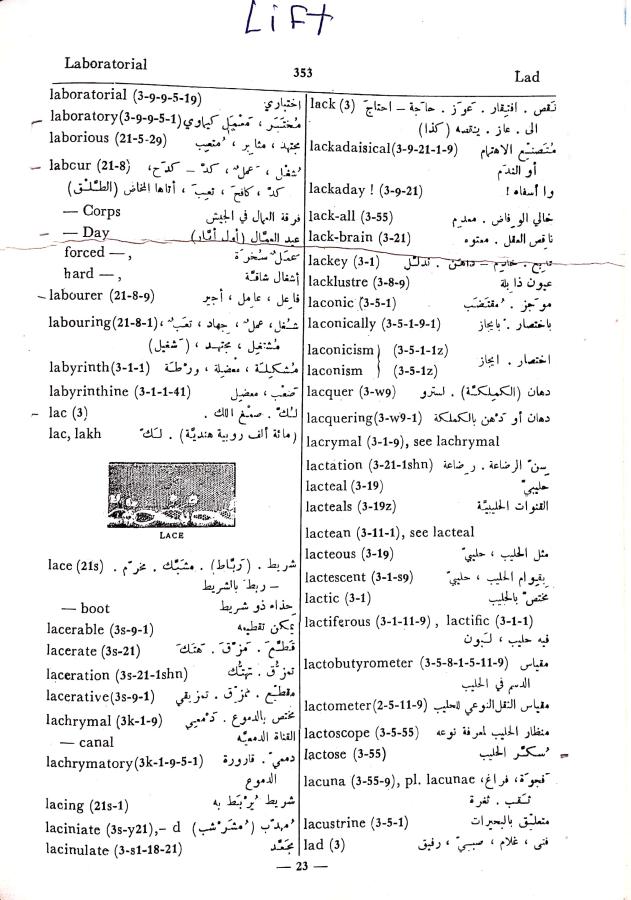 Lift
Laboratorial
353
Lad
laboratorial (3-9-9-5-19) اختباري
laboratory(3-9-9-5-1) مُختَبَر ، مَعْمَل كيماوي
laborious (21-5-29) مجتهد ، مثابر ، مُتعِب
labcur (21-8) شُغل ، عَمل ، كدّ – كدَح ،
كدّ ، كافحَ ، تعِبَ ، أتاها المخاض (الطَّلْق)
— Corps فرقة العمال في الجيش
— Day عيد العمَّال (أول أيَّار)
forced —, عمَل سُخرَة
hard —, أشغال شاقَّة
labourer (21-8-9) فاعل ، عامل ، أجير
labouring(21-8-1) شُغل، عمل ، جهاد ، تعَب ،
مشتغِل ، مجتهد ، (تشغيل)
labyrinth(3-1-1) مُشكِلة ، معضِلة ، ورطة
labyrinthine (3-1-1-41) صَعْب ، معضِل
lac (3) لُكّ . صمْغ اللك .
lac, lakh (مائة ألف روبية هنديَّة) . لَكّ
LACE
lace (21s) شريط . (رِبَّاط) . مشبَّك . مخرّم .
– ربطَ بالشريط
— boot حذاء ذو شريط
lacerable (3s-9-1) يمكن تقطيعه
lacerate (3s-21) قطَّع . مزّق . هتَك
laceration (3s-21-1shn) تمزُّق . تهتُّك
lacerative(3s-9-1) مقطِّع . ممزّق . تمزيقي
lachrymal (3k-1-9) مختص بالدموع . دَمْعيّ
— canal القناة الدمعيَّة
lachrymatory(3k-1-9-5-1) دمعيّ . قارورة
الدموع
lacing (21s-1) شريط يُرْبَط به
laciniate (3s-y21),– d مُهدّب (مُشَرْشَب)
lacinulate (3-s1-18-21) مجَعَّد
lack (3) نَقص . افتِقار . عَوَز . حاجة – احتاجَ
الى . عاز . ينقصه (كذا)
lackadaisical(3-9-21-1-9) مُتصنِّع الاهتمام
أو الندَم
lackaday ! (3-9-21) وا أسفاه !
lack-all (3-55) خالي الوفاض . معدِم
lack-brain (3-21) ناقص العقل . معتوه
lackey (3-1) تابِع . خادِم – داهَن . تذلَّل
lacklustre (3-8-9) عيون ذابلة
laconic (3-5-1) موجَز . مُقتضَب
laconically (3-5-1-9-1) باختصار . بإيجاز
laconicism (3-5-1-1z)
laconism (3-5-1z) اختصار . ايجاز
lacquer (3-w9) دهان (الكَمِلكَّة) . لسترو
lacquering(3-w9-1) دهان أو دَهْن بالكملكة
lacrymal (3-1-9), see lachrymal
lactation (3-21-1shn) سِنّ الرضاعة . رضاعة
lacteal (3-19) حليبيّ
lacteals (3-19z) القنوات الحليبيَّة
lactean (3-11-1), see lacteal
lacteous (3-19) مثل الحليب ، حليبيّ
lactescent (3-1-s9) بقِوام الحليب ، حليبيّ
lactic (3-1) مختصّ بالحليب
lactiferous (3-1-11-9) , lactific (3-1-1)
فيه حليب ، لَبون
lactobutyrometer (3-5-8-1-5-11-9) مقياس
الدسم في الحليب
lactometer(2-5-11-9) مقياس الثقل النوعي للحليب
lactoscope (3-5-55) منظار الحليب لمعرفة نوعه
lactose (3-55) سُكَّر الحليب
lacuna (3-55-9), pl. lacunae ، فجوَة، فراغ
ثَقب . ثغرة
lacustrine (3-5-1) متعلِّق بالبحيرات
lad (3) فتى ، غلام ، صبيّ ، رفيق
— 23 —